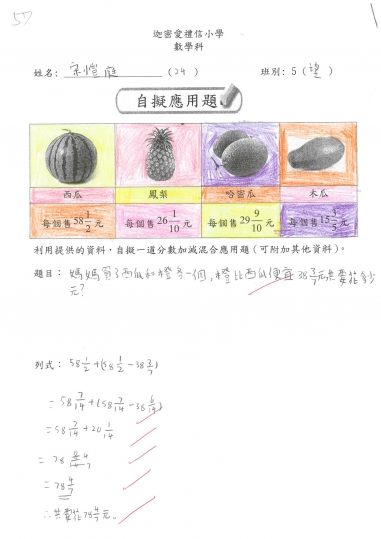 57
迦密愛禮信小學
數學科
姓名: 宋愷庭 (24) 班別: 5 (望)
自擬應用題
西瓜 鳳梨 哈密瓜 木瓜
每個售58 1/2元 每個售26 1/10元 每個售29 9/10元 每個售15 5/5元
利用提供的資料,自擬一道分數加減混合應用題(可附加其他資料)。
題目: 媽媽買了西瓜和橙各一個,橙比西瓜便宜38 3/7元,共要花多少
元?
列式: 58 1/2 + (58 1/2 - 38 3/7)
= 58 7/14 + (58 7/14 - 38 6/14)
= 58 7/14 + 20 1/14
= 78 8/14 4/7
= 78 4/7
∴共要花78 4/7元。